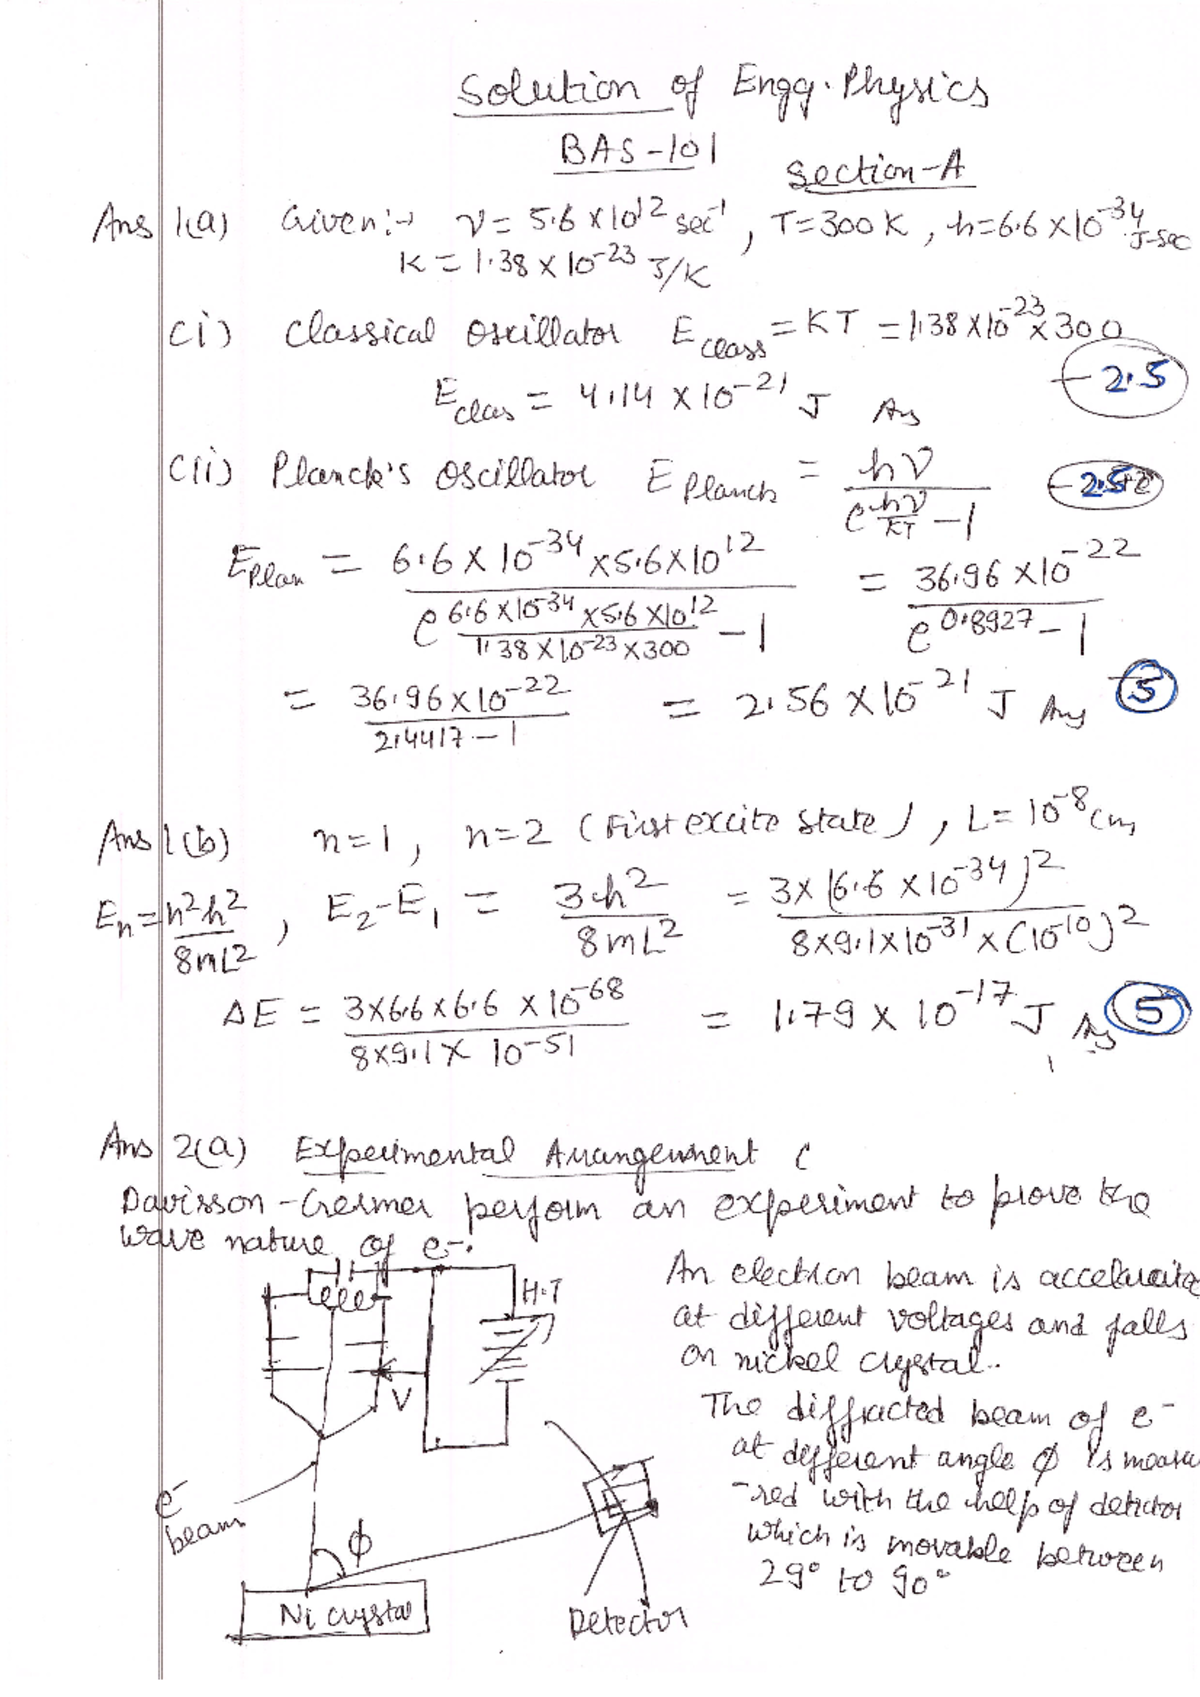 Solution of Engg. Physics
BAS-101
Section-A
Ans 1(a) Given:→ ν = 5.6 × 10^12 sec^-1, T=300 K, h=6.6 × 10^-34 J-sec
K = 1.38 × 10^-23 J/K
(i) Classical Oscillator E_class = KT = 1.38 × 10^-23 × 300
E_clas = 4.14 × 10^-21 J Ans — 2.5
(ii) Planck's Oscillator E_Planck = hν / (e^(hν/KT) - 1) — 2.5
E_Plan = (6.6 × 10^-34 × 5.6 × 10^12) / (e^(6.6 × 10^-34 × 5.6 × 10^12 / 1.38 × 10^-23 × 300) - 1) = (36.96 × 10^-22) / (e^0.8927 - 1)
= (36.96 × 10^-22) / (2.4417 - 1) = 2.56 × 10^-21 J Ans 5
Ans 1(b) n=1, n=2 (First excite state), L = 10^-8 cm
E_n = n²h² / 8mL², E_2-E_1 = 3h² / 8mL² = 3 × (6.6 × 10^-34)² / 8×9.1×10^-31 × (10^-10)²
ΔE = 3×6.6×6.6 × 10^-68 / 8×9.1× 10^-51 = 1.79 × 10^-17 J Ans 5
Ans 2(a) Experimental Arrangement (
Davisson-Germer perform an experiment to prove the
wave nature of e-.
H.T
V
e-
beam
φ
Ni crystal
Detector
An electron beam is accelerate
at different voltages and falls
on nickel crystal..
The diffracted beam of e-
at different angle φ is measu
-red with the help of detector
which is movable between
29° to 90°